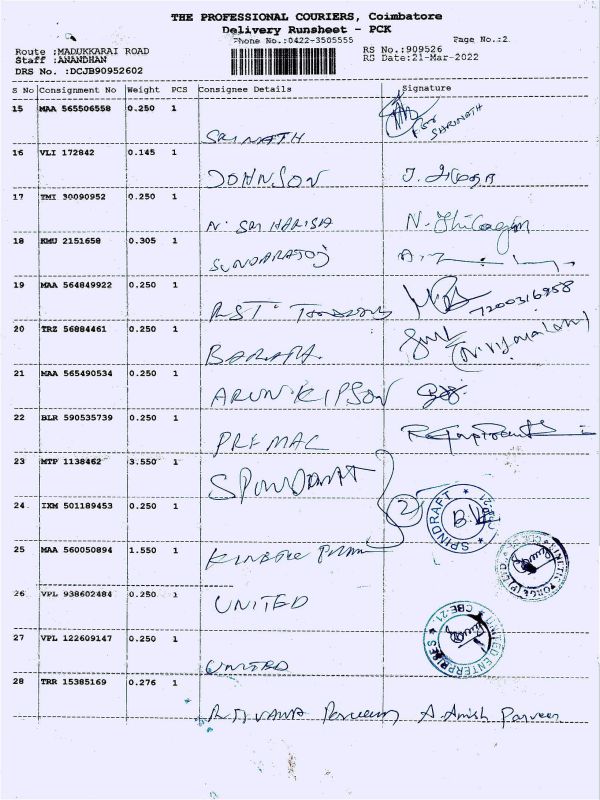 THE PROFESSIONAL COURIERS, Coimbatore
Delivery Runsheet - PCK
Phone No.:0422-3505555 Page No.:2
Route :MADUKKARAI ROAD RS No.:909526
Staff :ANANDHAN RS Date:21-Mar-2022
DRS No. :DCJB90952602
S No Consignment No Weight PCS Consignee Details Signature
15 MAA 565506558 0.250 1
SRINATH For SHRINATH
16 VLI 172842 0.145 1
JOHNSON
17 TMI 30090952 0.250 1
N. SRI HARISH
18 KMU 2151658 0.305 1
SUNDARARAJ
19 MAA 564849922 0.250 1
7200316958
20 TRZ 56884461 0.250 1
BARATH.
21 MAA 565490534 1 0.250
ARUN KIPSON
22 BLR 590535739 0.250 1
PREMAC
23 MTP 1138462 3.550 1
2
24 IXM 501189453 0.250 1
SPINDRAFT
25 MAA 560050894 1.550 1
26 VPL 938602484 0.250 1
UNITED
27 VPL 122609147 0.250 1
UNITED
UNITED ENTERPRISES CBE-21.
28 TRR 15385169 0.276 1
Parveen A. Amish Parveen